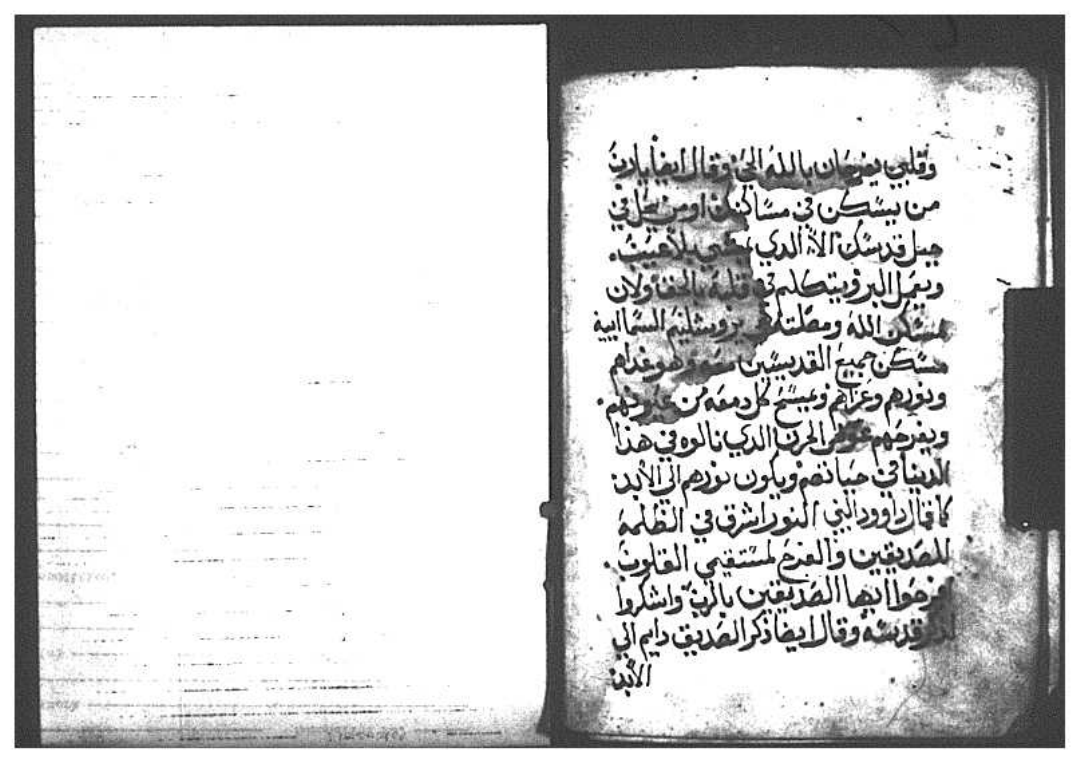 وقلبي يفرحان بالله الحي وقال ايضا يارب
من يسكن في مساكنك اومن يحل في
جبل قدسك الا الدي يمشي بلا عيب.
ويعمل البر ويتكلم في قلبه بالحق ولان
مسكن الله ومظلته يروشليم السماايية
مسكن جميع القديسين وهو غداهم
ونورهم وعزاهم ويمسح كل دمعه من عيونهم.
ويفرحهم عوض الحزن الدي نالوه في هذا
الدنيا في حياتهم ويكون نورهم الي الابد:
كما قال داوود النبي النور اشرق في الظلمه
للصديقين والفرح لمستقيمي القلوب.
افرحوا ايها الصديقين بالرب واشكروا
لذكر قدسه وقال ايضا ذكر الصديق دايم الي
الابد: